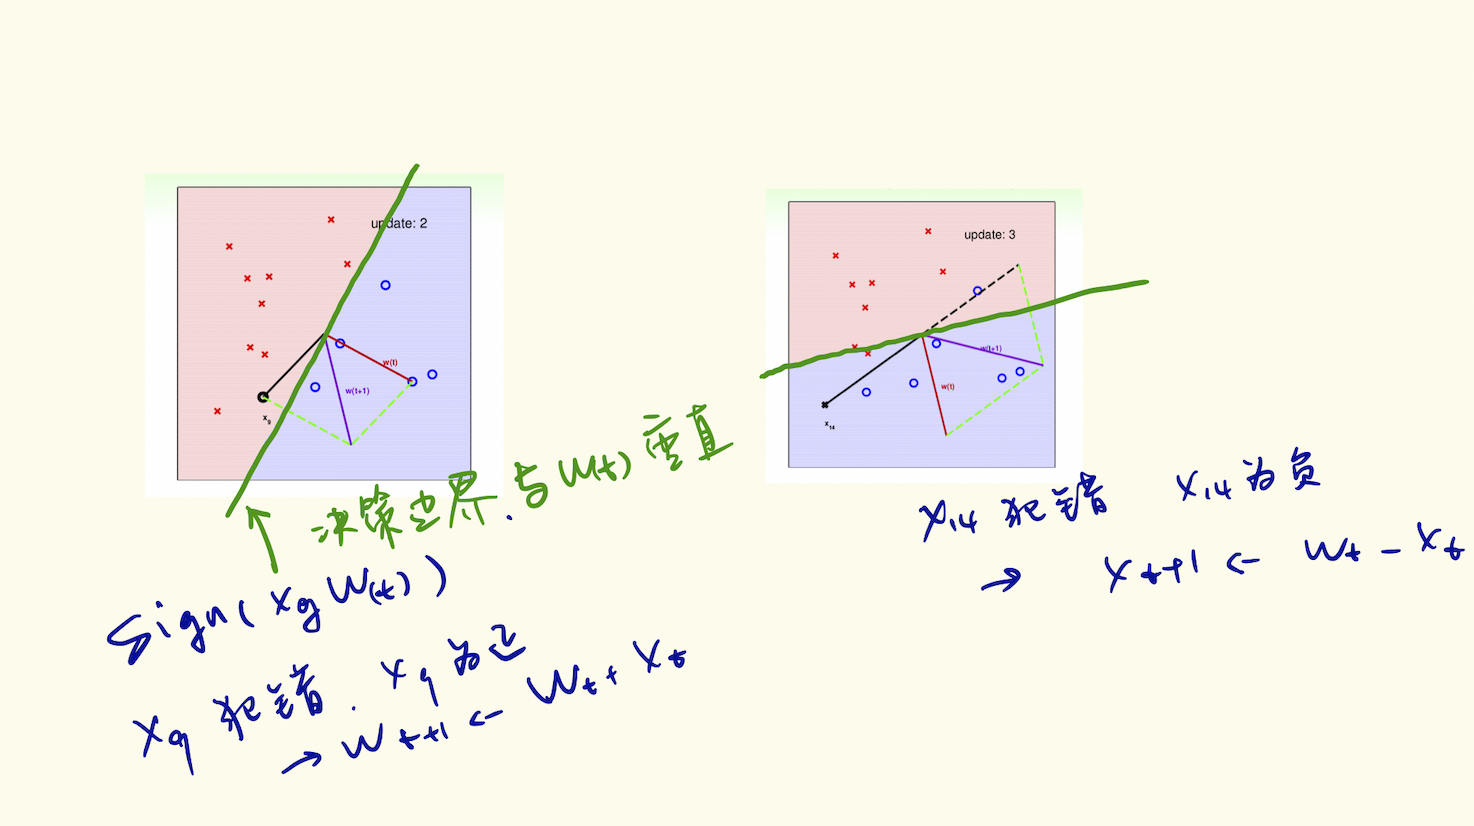 update: 2
w(t)
w(t+1)
x9
决策边界.与W(t)垂直
Sign(x9 W(t))
x9 犯错. x9 为正
→ Wt+1 ← Wt + xt
update: 3
w(t+1)
w(t)
x14
x14 犯错 x14 为负
→ xt+1 ← Wt - xt